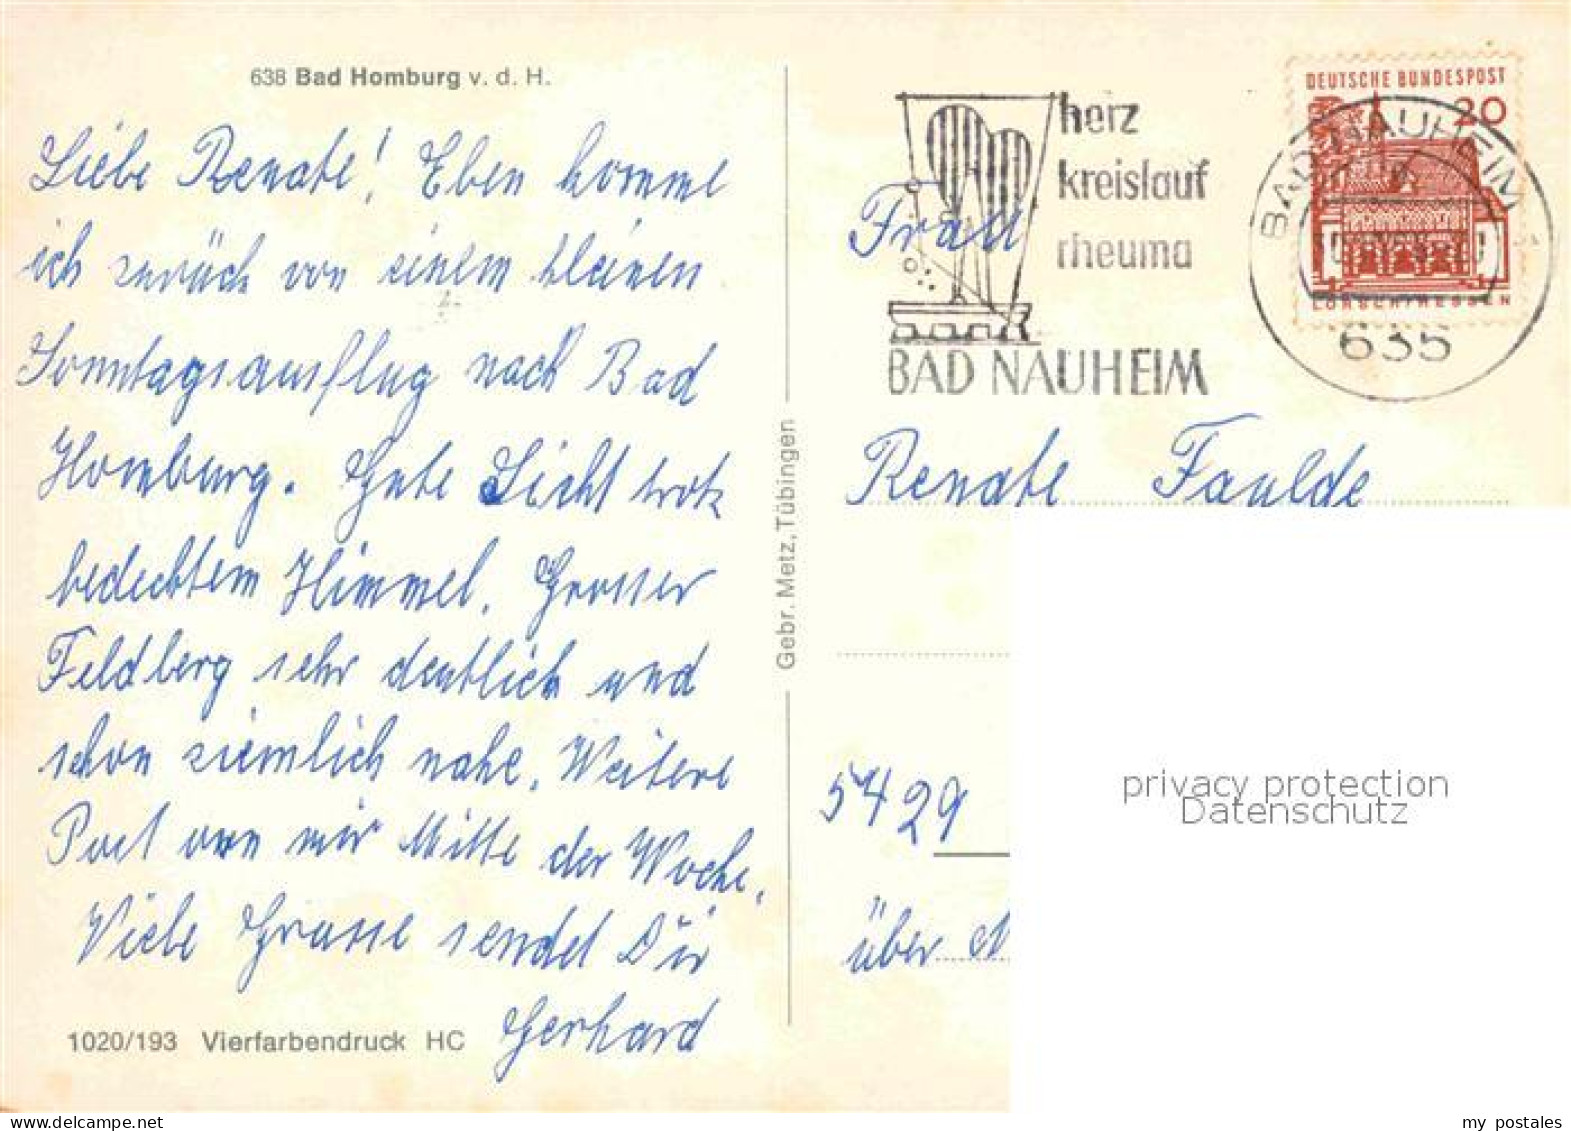 638 Bad Homburg v. d. H.
Liebe Renate! Eben komme
ich zurück von einem kleinen
Sonntagsausflug nach Bad
Homburg. Gute Sicht trotz
bedecktem Himmel. Grosser
Feldberg sehr deutlich und
schon ziemlich nahe. Weitere
Post von mir Mitte der Woche.
Viele Grüsse sendet Dir
Gerhard
1020/193 Vierfarbendruck HC
Gebr. Metz, Tübingen
herz
kreislauf
rheuma
BAD NAUHEIM
DEUTSCHE BUNDESPOST
20
LORSCH/HESSEN
BAD NAUHEIM
635
Frau
Renate Faulde
5429
über
privacy protection
Datenschutz
delcampe.net
my_postales